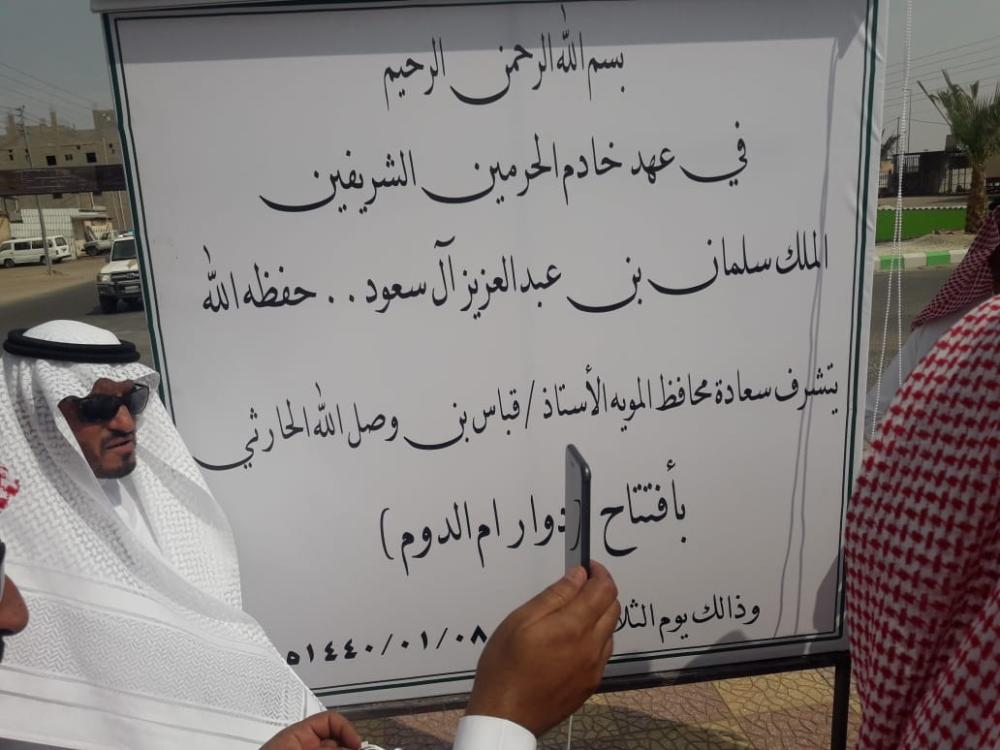 بسم الله الرحمن الرحيم
في عهد خادم الحرمين الشريفين
الملك سلمان بن عبدالعزيز آل سعود .. حفظه الله
يتشرف سعادة محافظ المويه الأستاذ / قباس بن وصل الله الحارثي
بأفتتاح (دوار ام الدوم)
وذالك يوم ٠٨/٠١/١٤٤٠ه